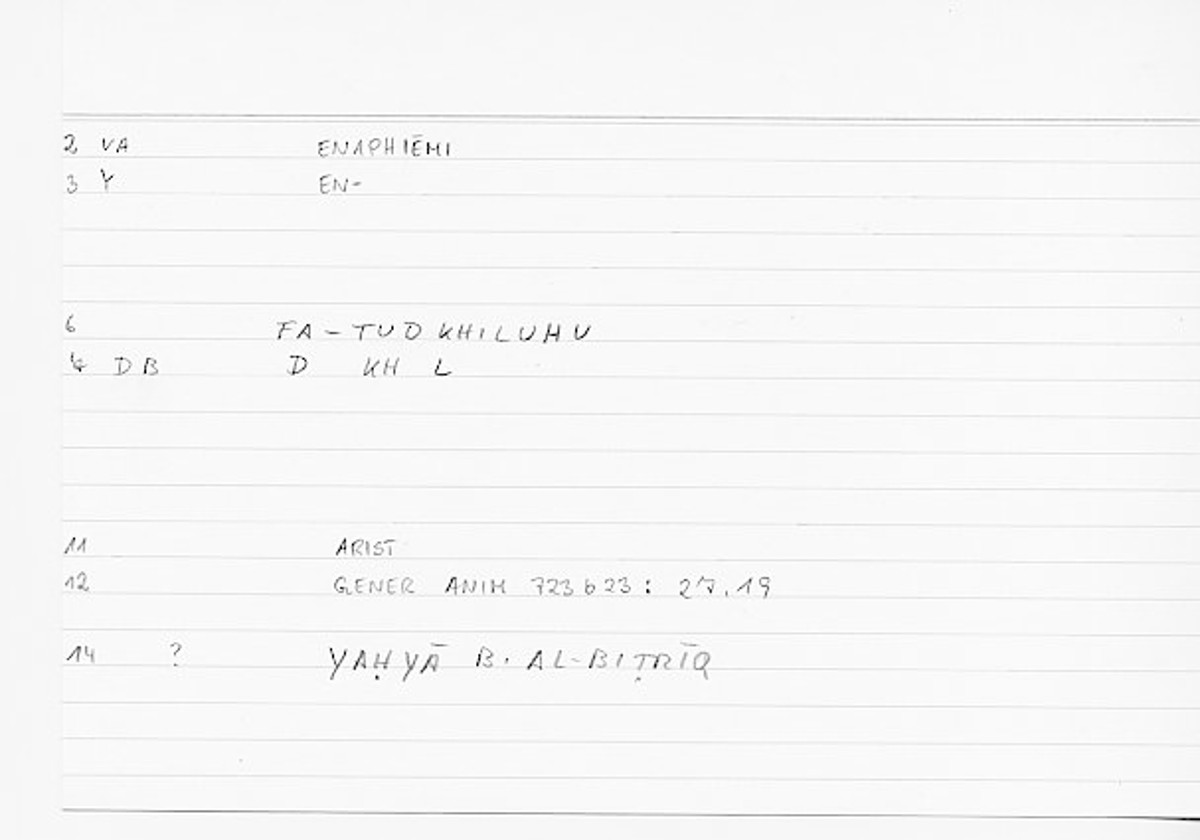 2 VA ENAPHIĒMI
3 Y EN-
6 FA-TUDKHILUHU
4 DB D KH L
11 ARIST
12 GENER ANIM 723b23: 27.19
14 ? YAḤYĀ B. AL-BIṬRĪQ